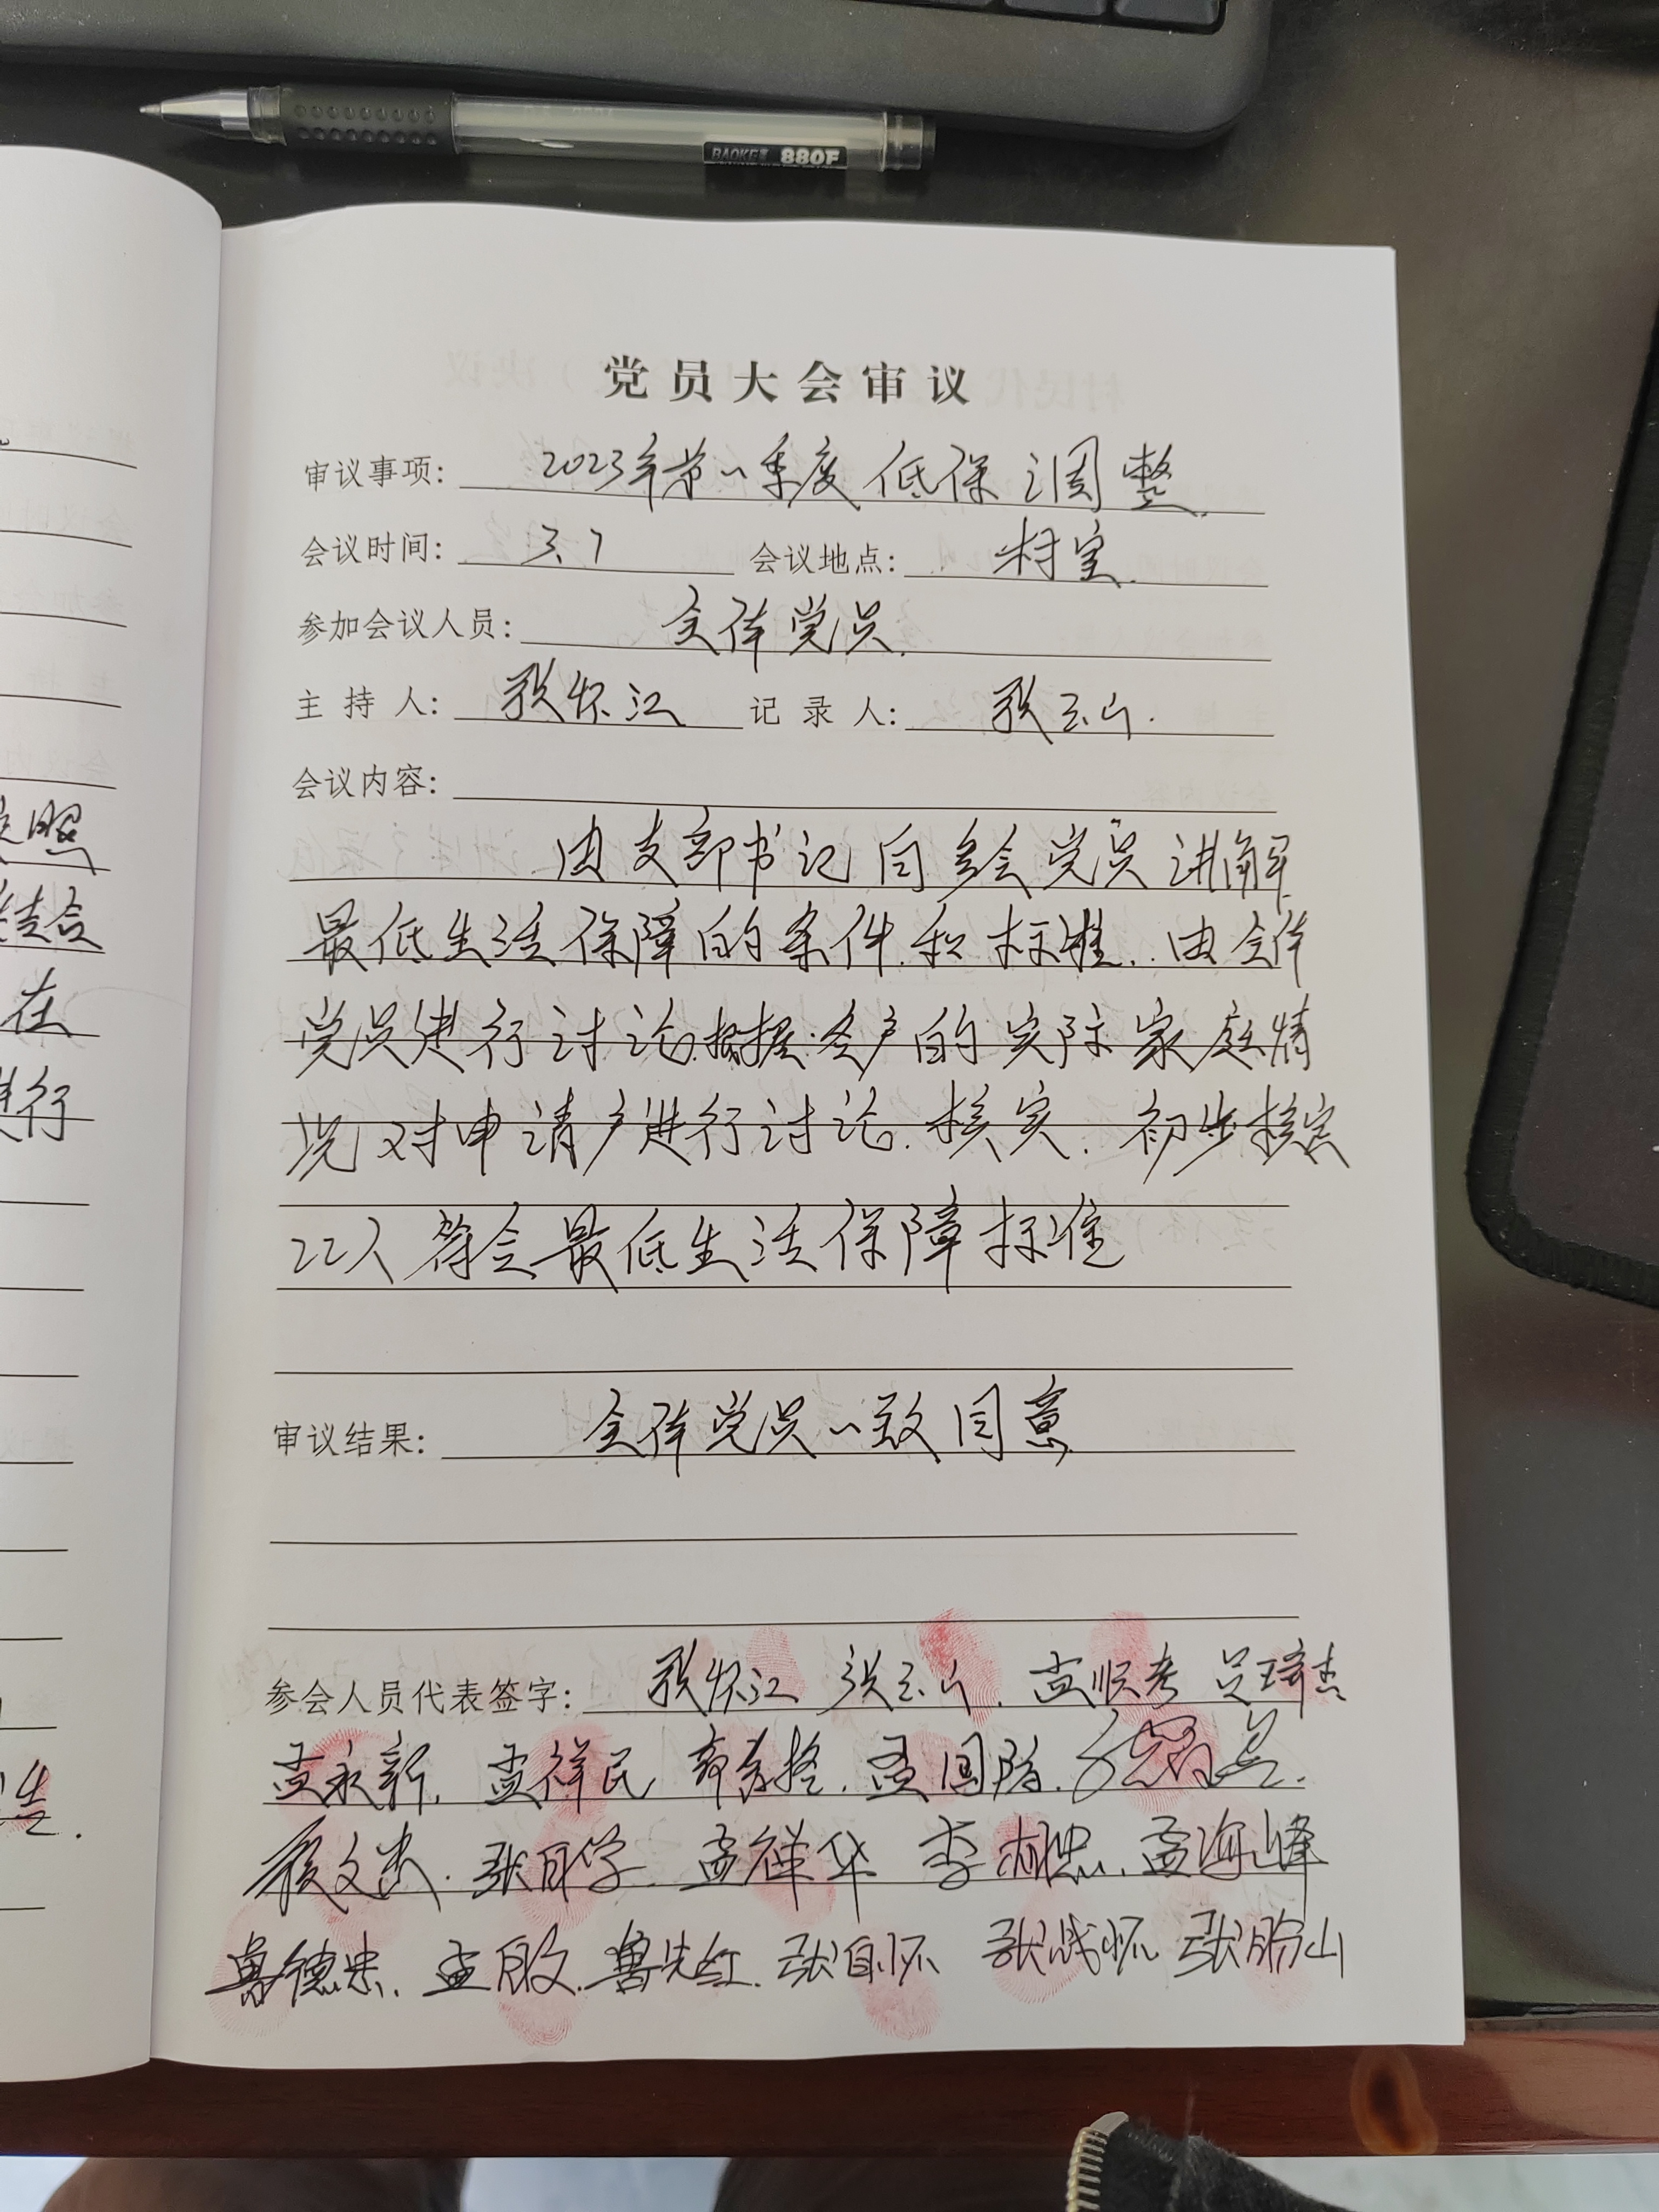 BAOKE 880F
党员大会审议
审议事项: 2023年第一季度低保调整
会议时间: 3.7 会议地点: 村室
参加会议人员: 全体党员
主持人: 张怀江 记录人: 张玉山
会议内容:
由支部书记向参会党员讲解
最低生活保障的条件和标准. 由全体
党员进行讨论.根据各户的实际家庭情
况对申请户进行讨论.核实.初步核定
22人符合最低生活保障标准
审议结果: 全体党员一致同意
参会人员代表签字: 张怀江 张玉山. 孟顺考
孟永新. 孟祥民 孟国防.
张月学. 孟祥华 孟海峰
鲁德忠. 鲁先红. 张自怀 张战怀 张胎山
照
结合
在
进行